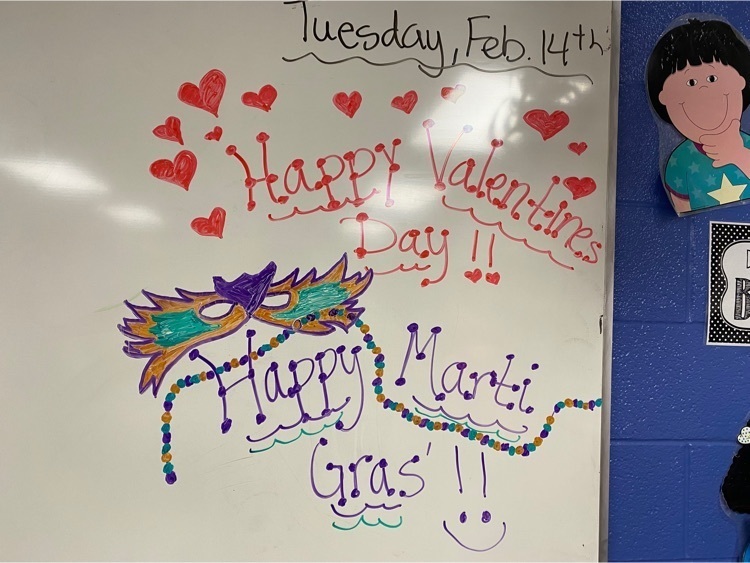 Tuesday, Feb. 14th
Happy Valentines
Day !!
Happy Marti
Gras' !!